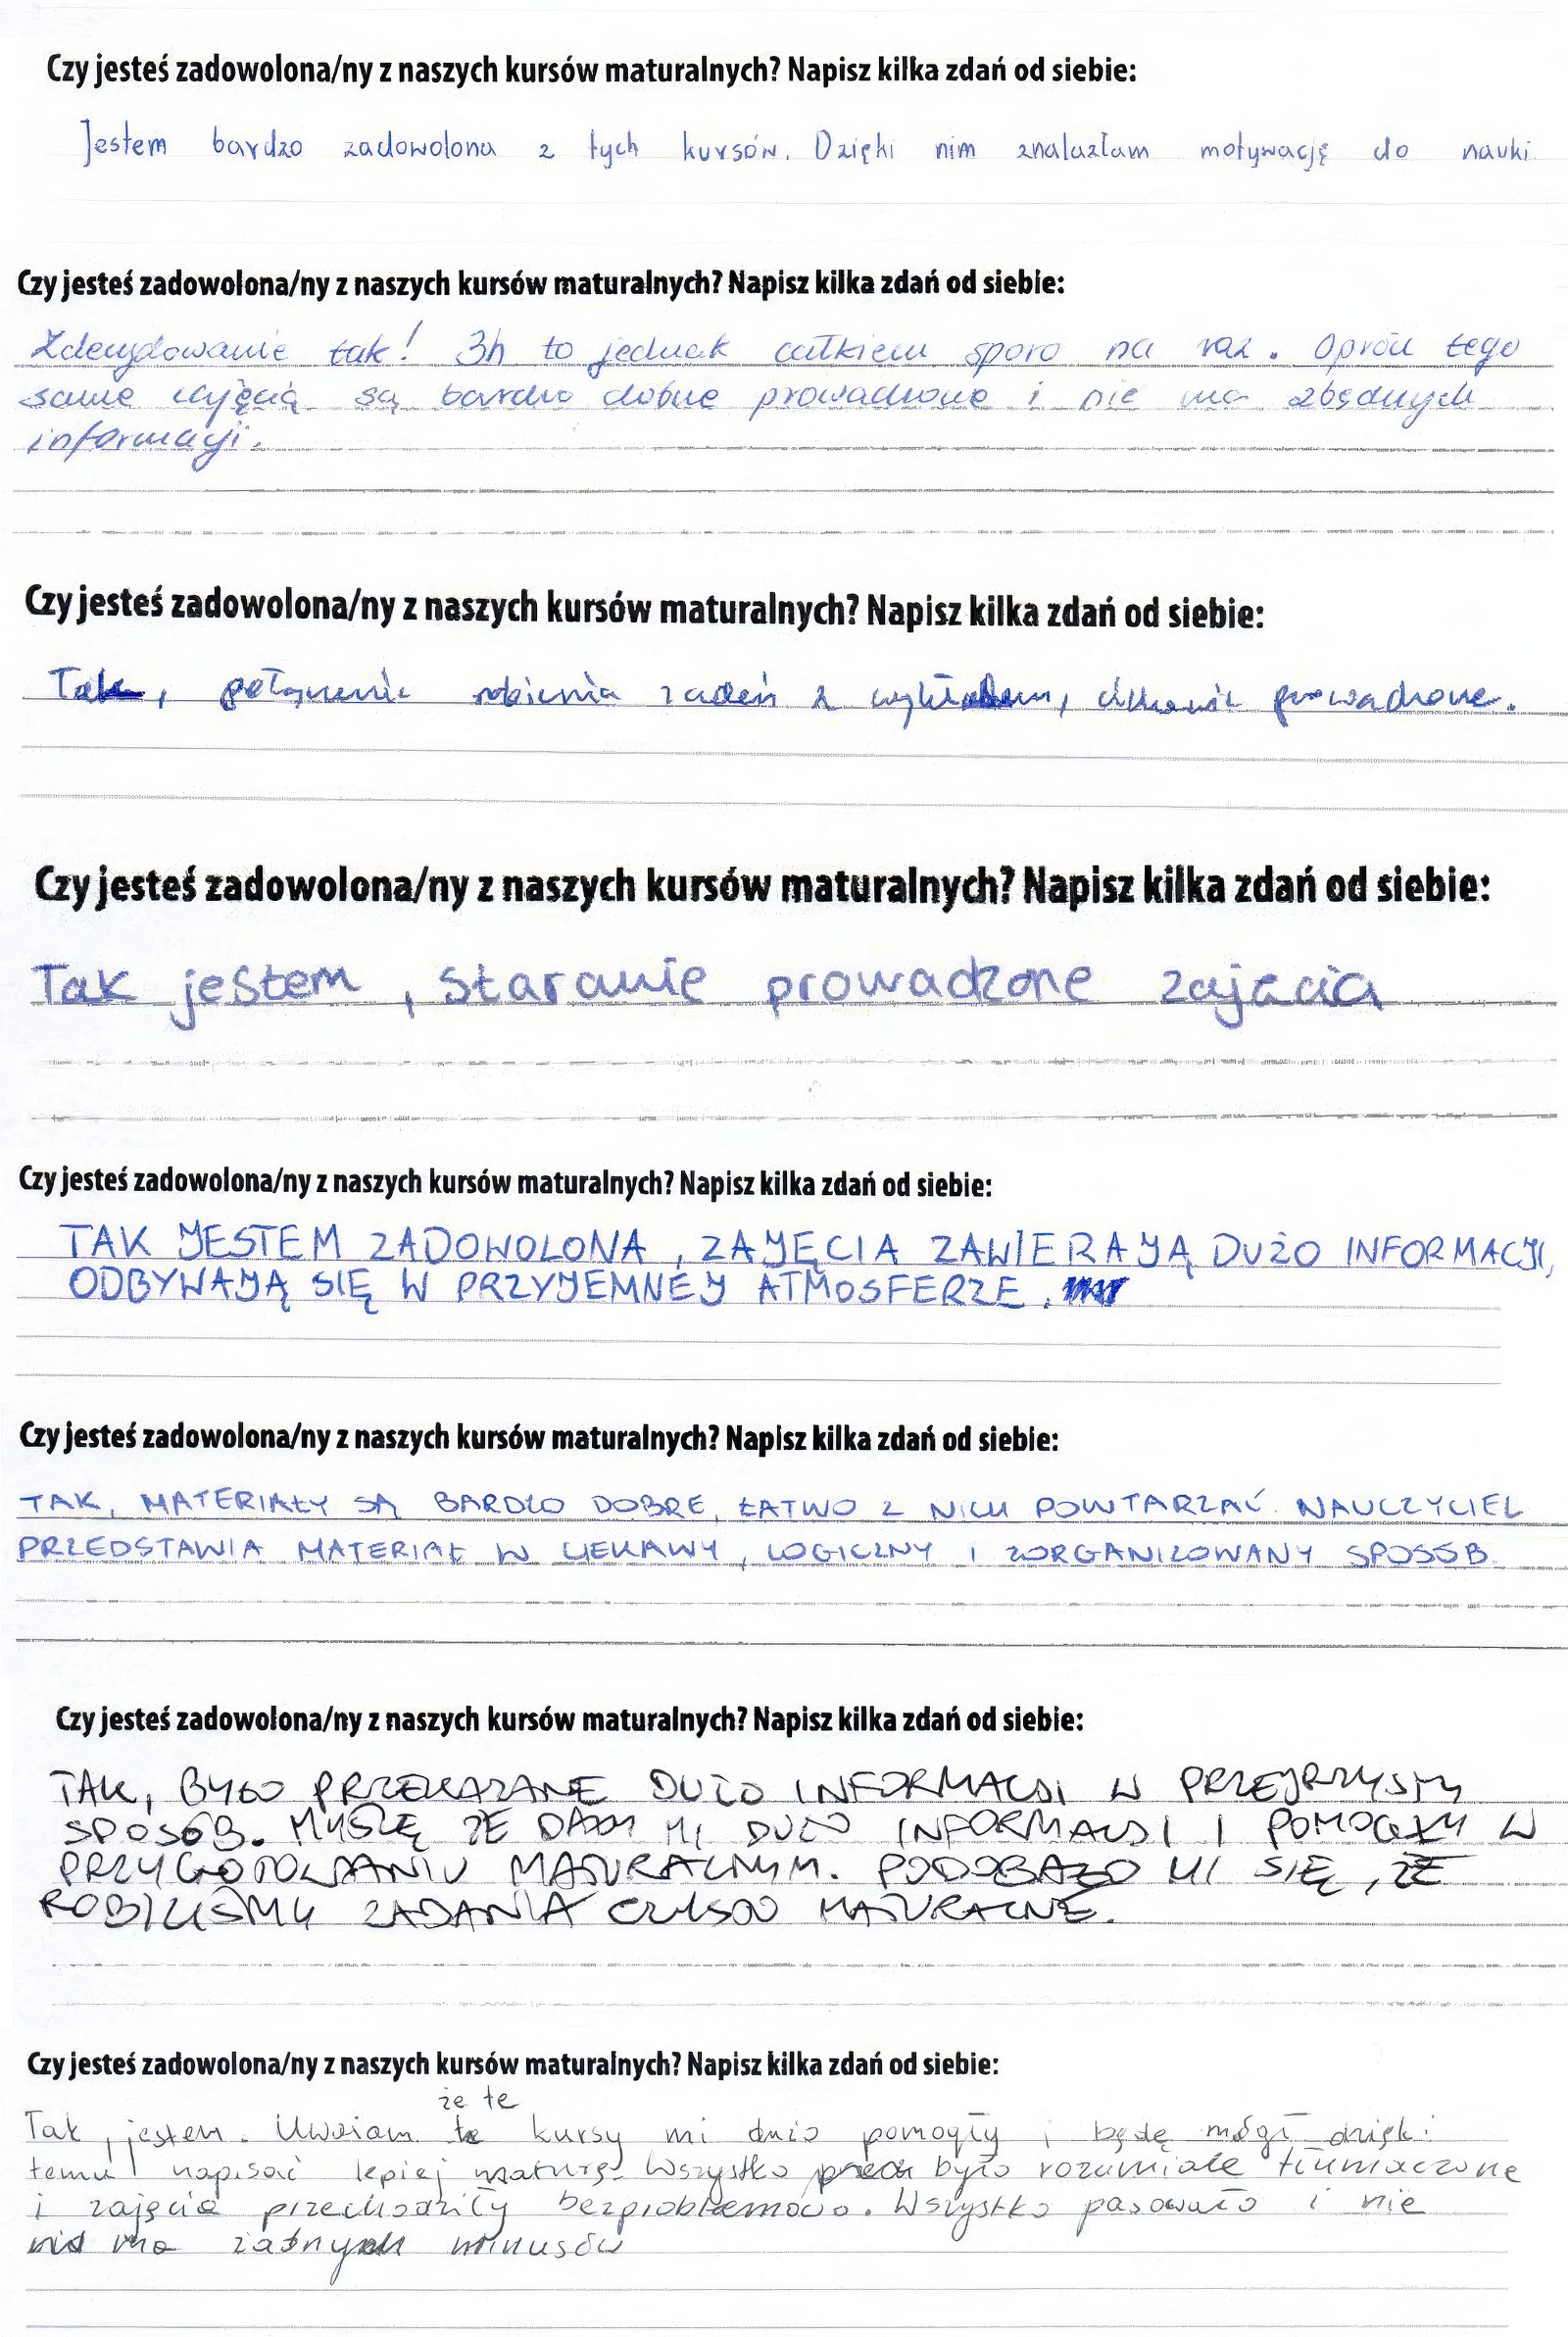 Czy jesteś zadowolona/ny z naszych kursów maturalnych? Napisz kilka zdań od siebie:
Jestem bardzo zadowolona z tych kursów. Dzięki nim znalazłam motywację do nauki
Czy jesteś zadowolona/ny z naszych kursów maturalnych? Napisz kilka zdań od siebie:
Zdecydowanie tak! 3h to jednak całkiem sporo na raz. Oprócz tego
same zajęcią są bardzo dobrze prowadzone i nie ma zbędnych
informacji.
Czy jesteś zadowolona/ny z naszych kursów maturalnych? Napisz kilka zdań od siebie:
Tak, połączenie robienia zadań z wykładem, ciekawie prowadzone.
Czy jesteś zadowolona/ny z naszych kursów maturalnych? Napisz kilka zdań od siebie:
Tak jestem, staranie prowadzone zajęcia
Czy jesteś zadowolona/ny z naszych kursów maturalnych? Napisz kilka zdań od siebie:
TAK JESTEM ZADOWOLONA, ZAJĘCIA ZAWIERAJĄ DUŻO INFORMACJI,
ODBYWAJĄ SIĘ W PRZYJEMNEJ ATMOSFERZE.
Czy jesteś zadowolona/ny z naszych kursów maturalnych? Napisz kilka zdań od siebie:
TAK, MATERIAŁY SĄ BARDZO DOBRE, ŁATWO Z NICH POWTARZAĆ. NAUCZYCIEL
PRZEDSTAWIA MATERIAŁ W CIEKAWY, LOGICZNY I ZORGANIZOWANY SPOSÓB
Czy jesteś zadowolona/ny z naszych kursów maturalnych? Napisz kilka zdań od siebie:
TAK, BYŁO PRZEKAZANE DUŻO INFORMACJI W PRZEJRZYSTY
SPOSÓB. MYŚLĘ ŻE DAŁY MI DUŻO INFORMACJI I POMOGŁY W
PRZYGOTOWANIU MATURALNYM. PODOBAŁO MI SIĘ, ŻE
ROBILIŚMY ZADANIA CZYSTO MATURALNE.
Czy jesteś zadowolona/ny z naszych kursów maturalnych? Napisz kilka zdań od siebie:
że te
Tak, jestem. Uważam kursy mi dużo pomogły i będę mógł dzięki
temu napisać lepiej maturę. Wszystko było rozumiale tłumaczone
i zajęcia przechodziły bezproblemowo. Wszystko pasowało i nie
ma żadnych minusów